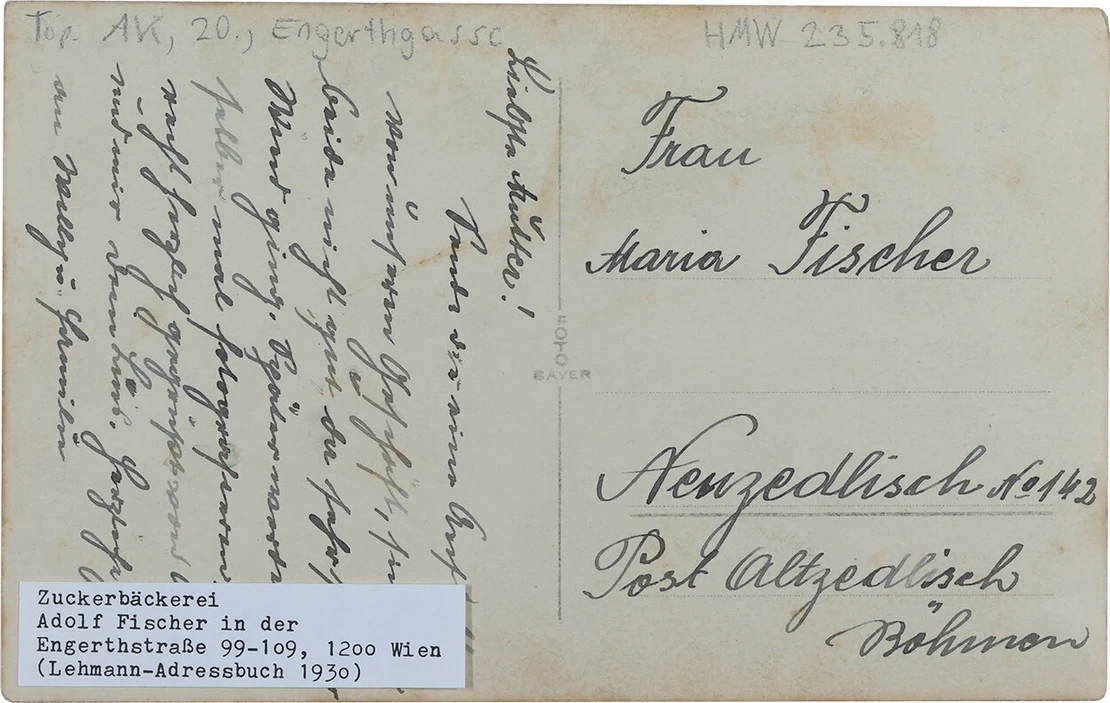 Top. AK, 20., Engerthgasse
HMW 235.818
Liebste Mutter!
Sende dir eine
von unserem Geschäft,
beide nicht gut da sehr
Wind ging. Später werde
selber mal fotografieren
recht herzlich gegrüßt
und mir Herzliche
an Familie
FOTO
BAYER
Frau
Maria Fischer
Neuzedlisch No 142
Post Altzedlisch
Böhmen
Zuckerbäckerei
Adolf Fischer in der
Engerthstraße 99-109, 1200 Wien
(Lehmann-Adressbuch 1930)